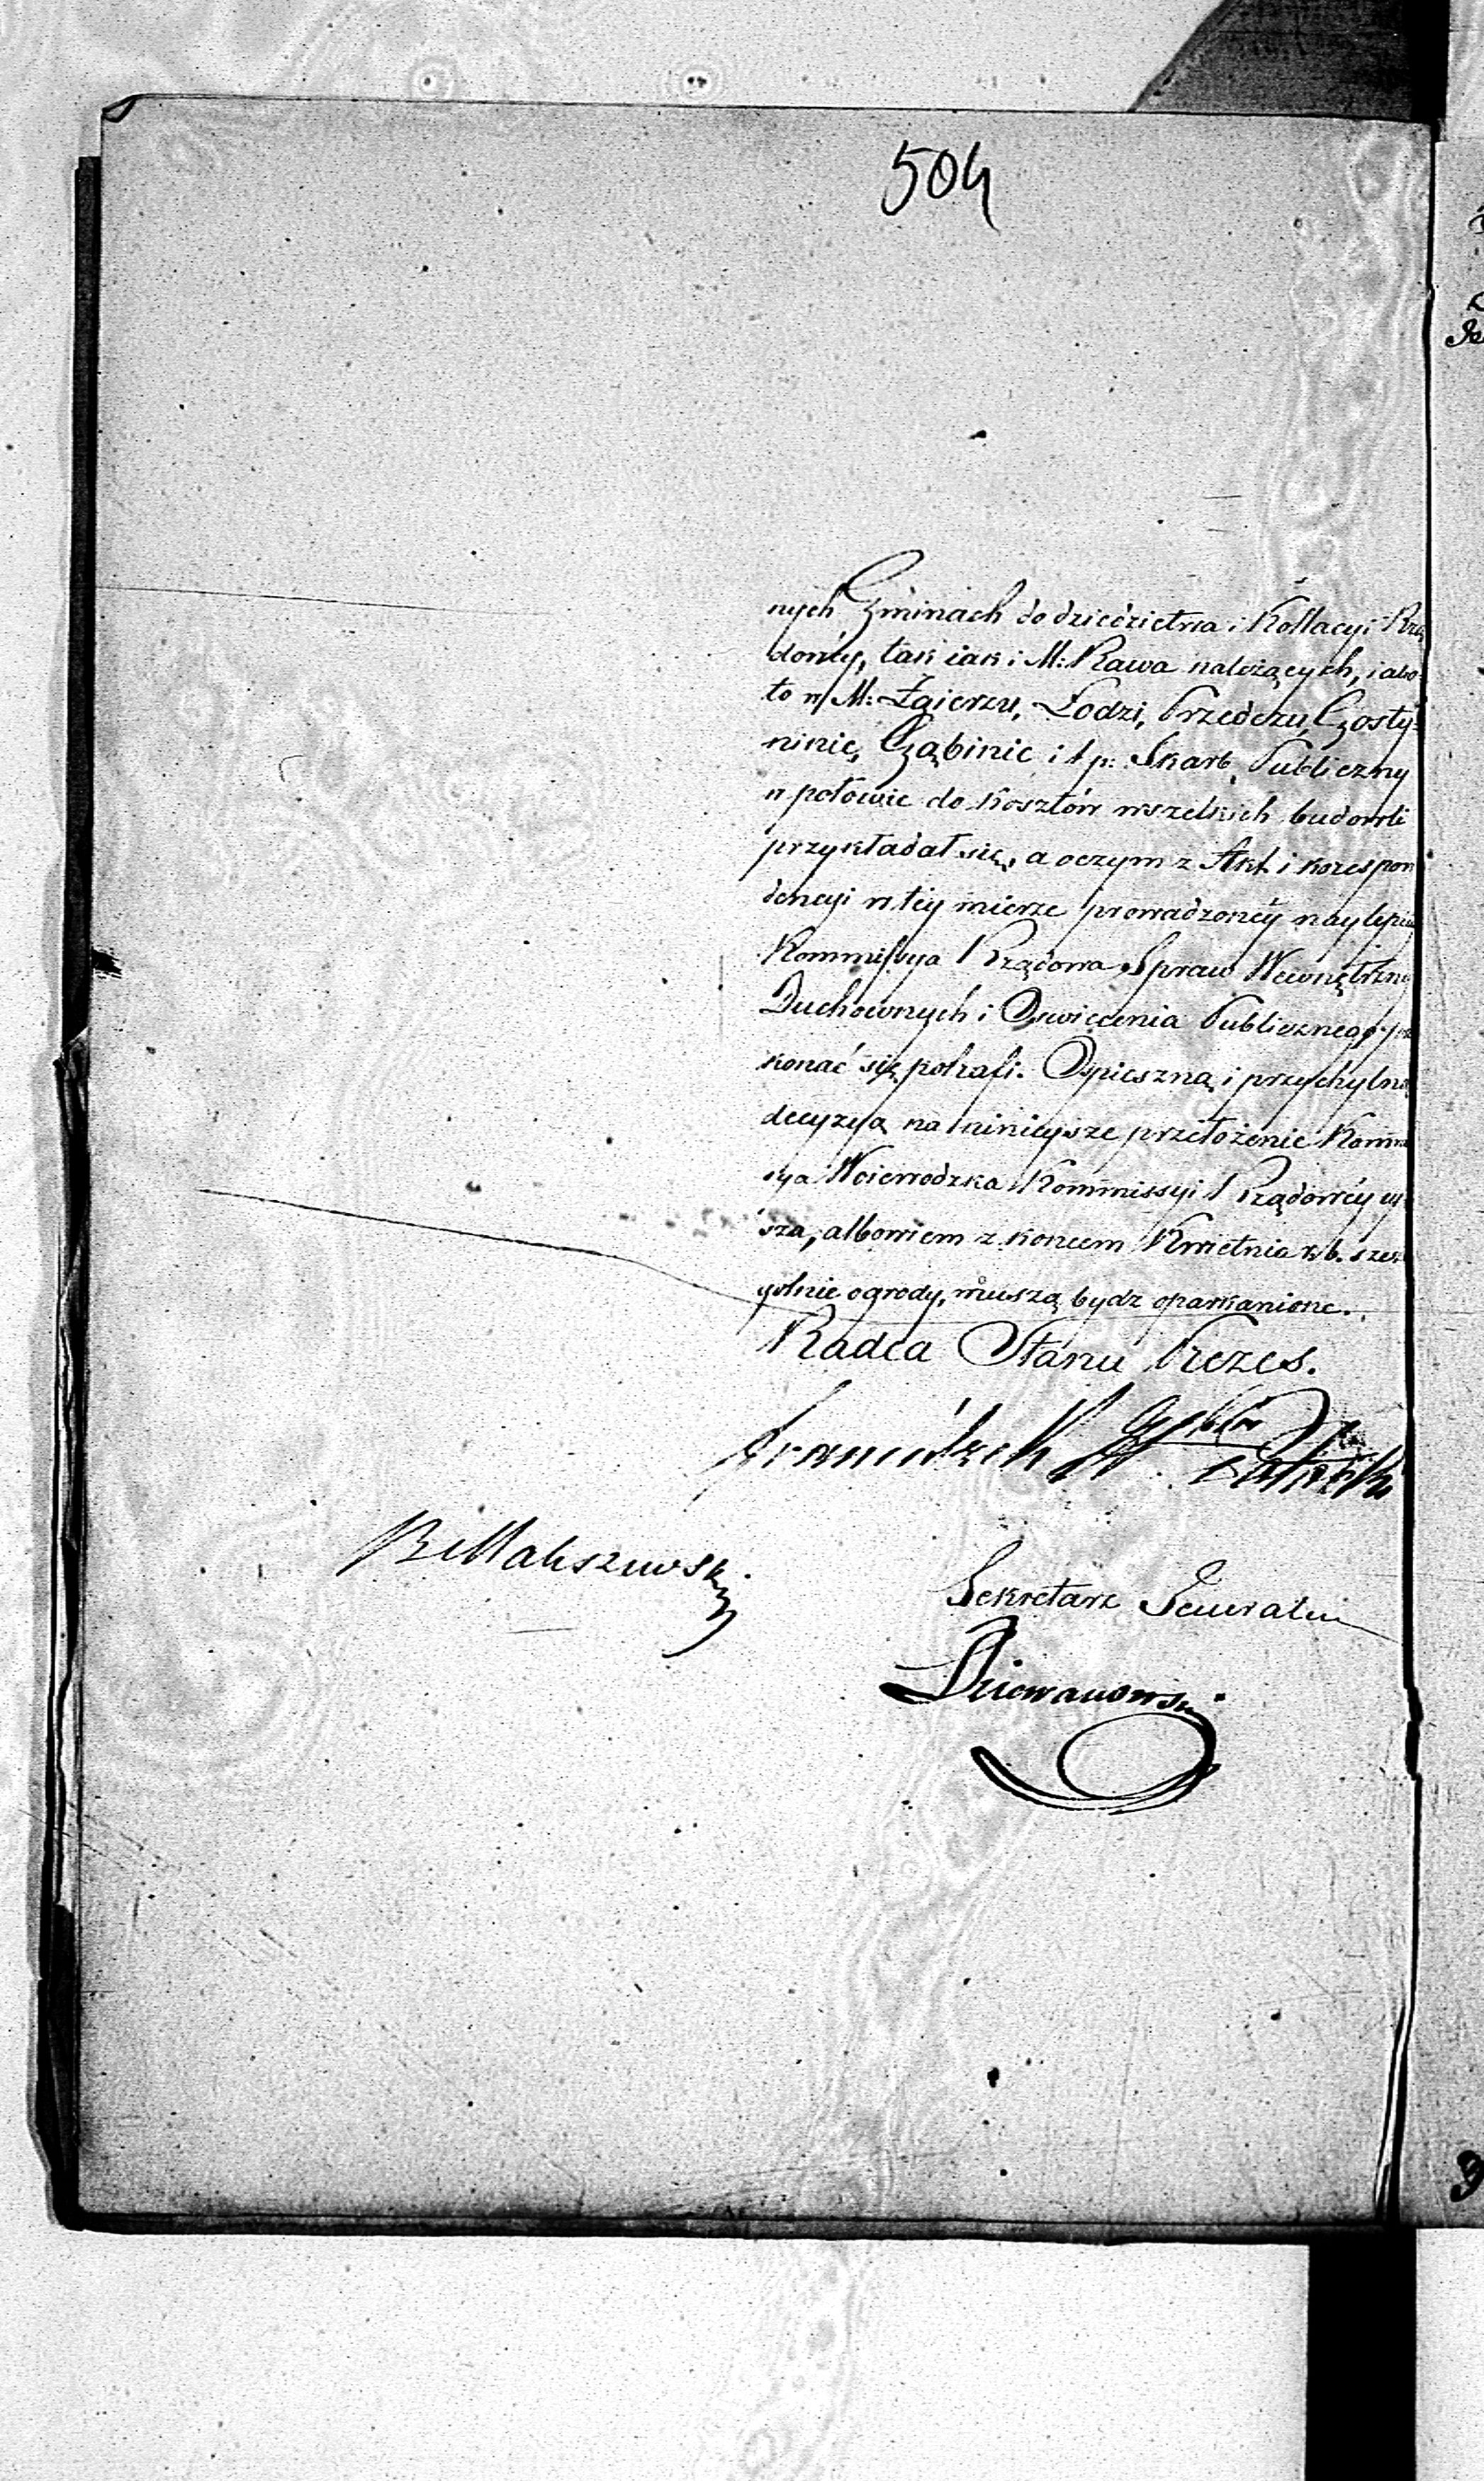 504
nych Gminach do dziedzictwa i Kollacyi Rzą
dowéy, tak iak i M: Rawa należących, iako
to w M: Zgierzu, Łodzi, Przedczu, Gosty-
ninie, Gąbinie i t p: Skarb Publiczny
w połowie do kosztów wszelkich budowli
przykładał się, a oczym z Akt i korespon
dencyi w téy mierze prowadzonéy naylepiéy
Kommissya Rządowa Spraw Wewnętrzn
Duchownych i Oświecenia Publicznego prze
konać się potrafi. O spieszną i przychylną
decyzyą na ninieysze przełożenie Kommis
sya Woiewodzka Kommissyi Rządowéy
sza, albowiem z końcem Kwietnia r. b. szcze
gólnie ogrody, muszą bydz oparkanione.
Radca Stanu Prezes.
Franciszek
R Maliszewski
Sekretarz Generalny
Dziewanowski